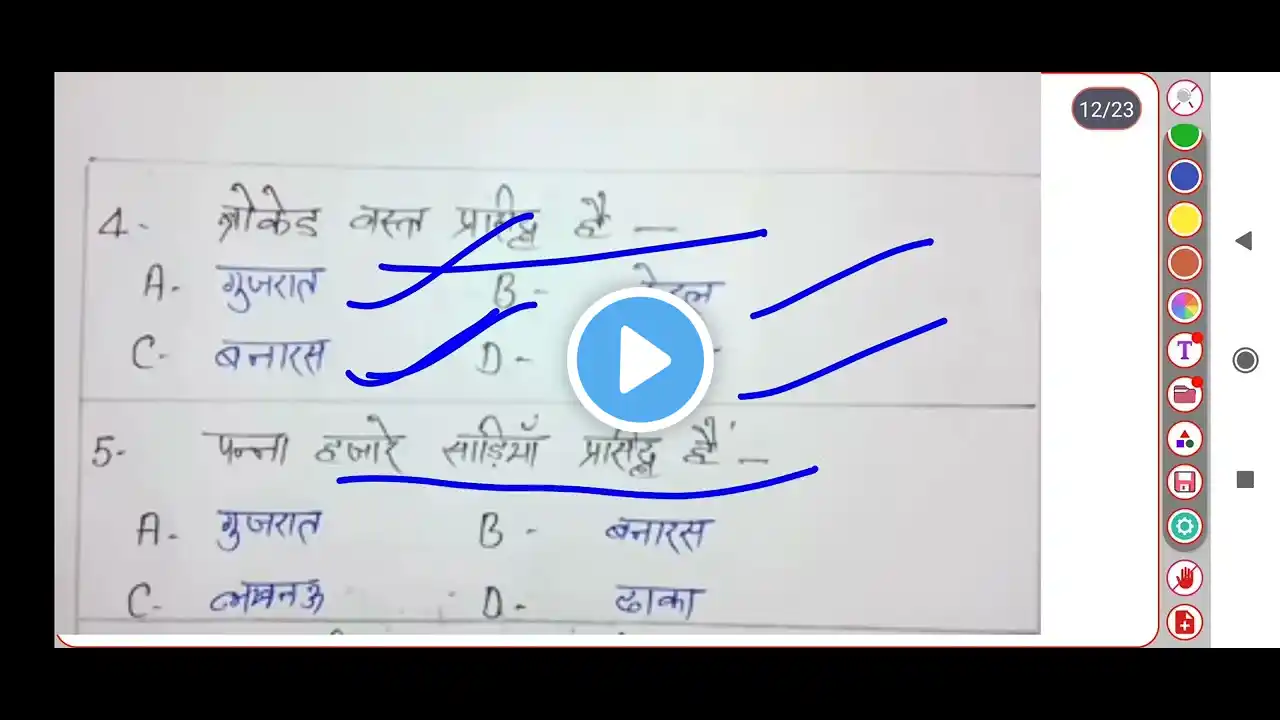 12/23
4- ब्रोकेड वस्त्र प्रसिद्ध है —
A- गुजरात B-
C- बनारस D-
5- पन्ना हजारे साड़ियाँ प्रसिद्ध हैं —
A- गुजरात B- बनारस
C- लखनऊ D- ढाका
T